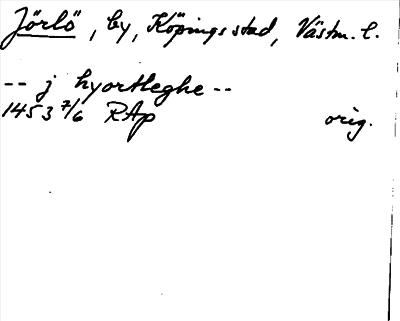 Jörlö, by, Köpings stad, Västm. l.
-- j hyortleghe --
1453 7/6 RAp orig.